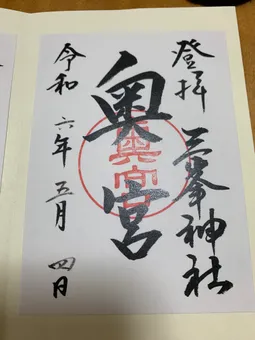 登拝 三峯神社
奥宮
令和 六年 五月 四日